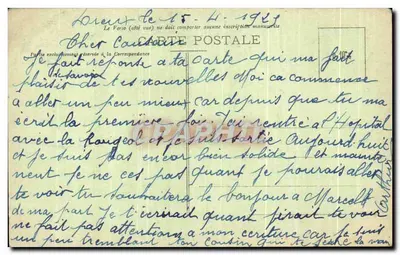 le 15-4-1929
Le Verso (côté vue) ne doit comporter aucune inscription manuscrite
CARTE POSTALE
Cher Cousin
Partie exclusivement réservée à la Correspondance
Je fait reponse a ta carte qui ma fait
plaisir de tes nouvelles Moi ca commence
a aller un peu mieux car depuis que tu ma
ecrit la première fois j'ai rentré a l'Hopital
avec la Rougeol et je suis sortie Aujourd'huit
et je suis pas encor bien solide et mainte
nent je ne ces pas quant je pourais aller
te voir tu souhaitera le bonjour a Marcell
de ma part Je t'ecrirait quant j'irait te voir
ne fait pas attentions a mon ecriture car je suis
un peu tremblant ton cousin qui te serre la main